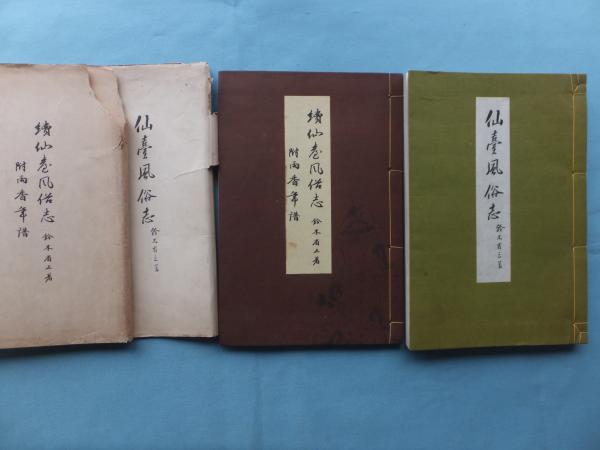 仙臺風俗志
鈴木省三著
續仙臺風俗志
鈴木省三著
附雨香年譜
續仙臺風俗志
鈴木省三著
附雨香年譜
仙臺風俗志
鈴木省三著